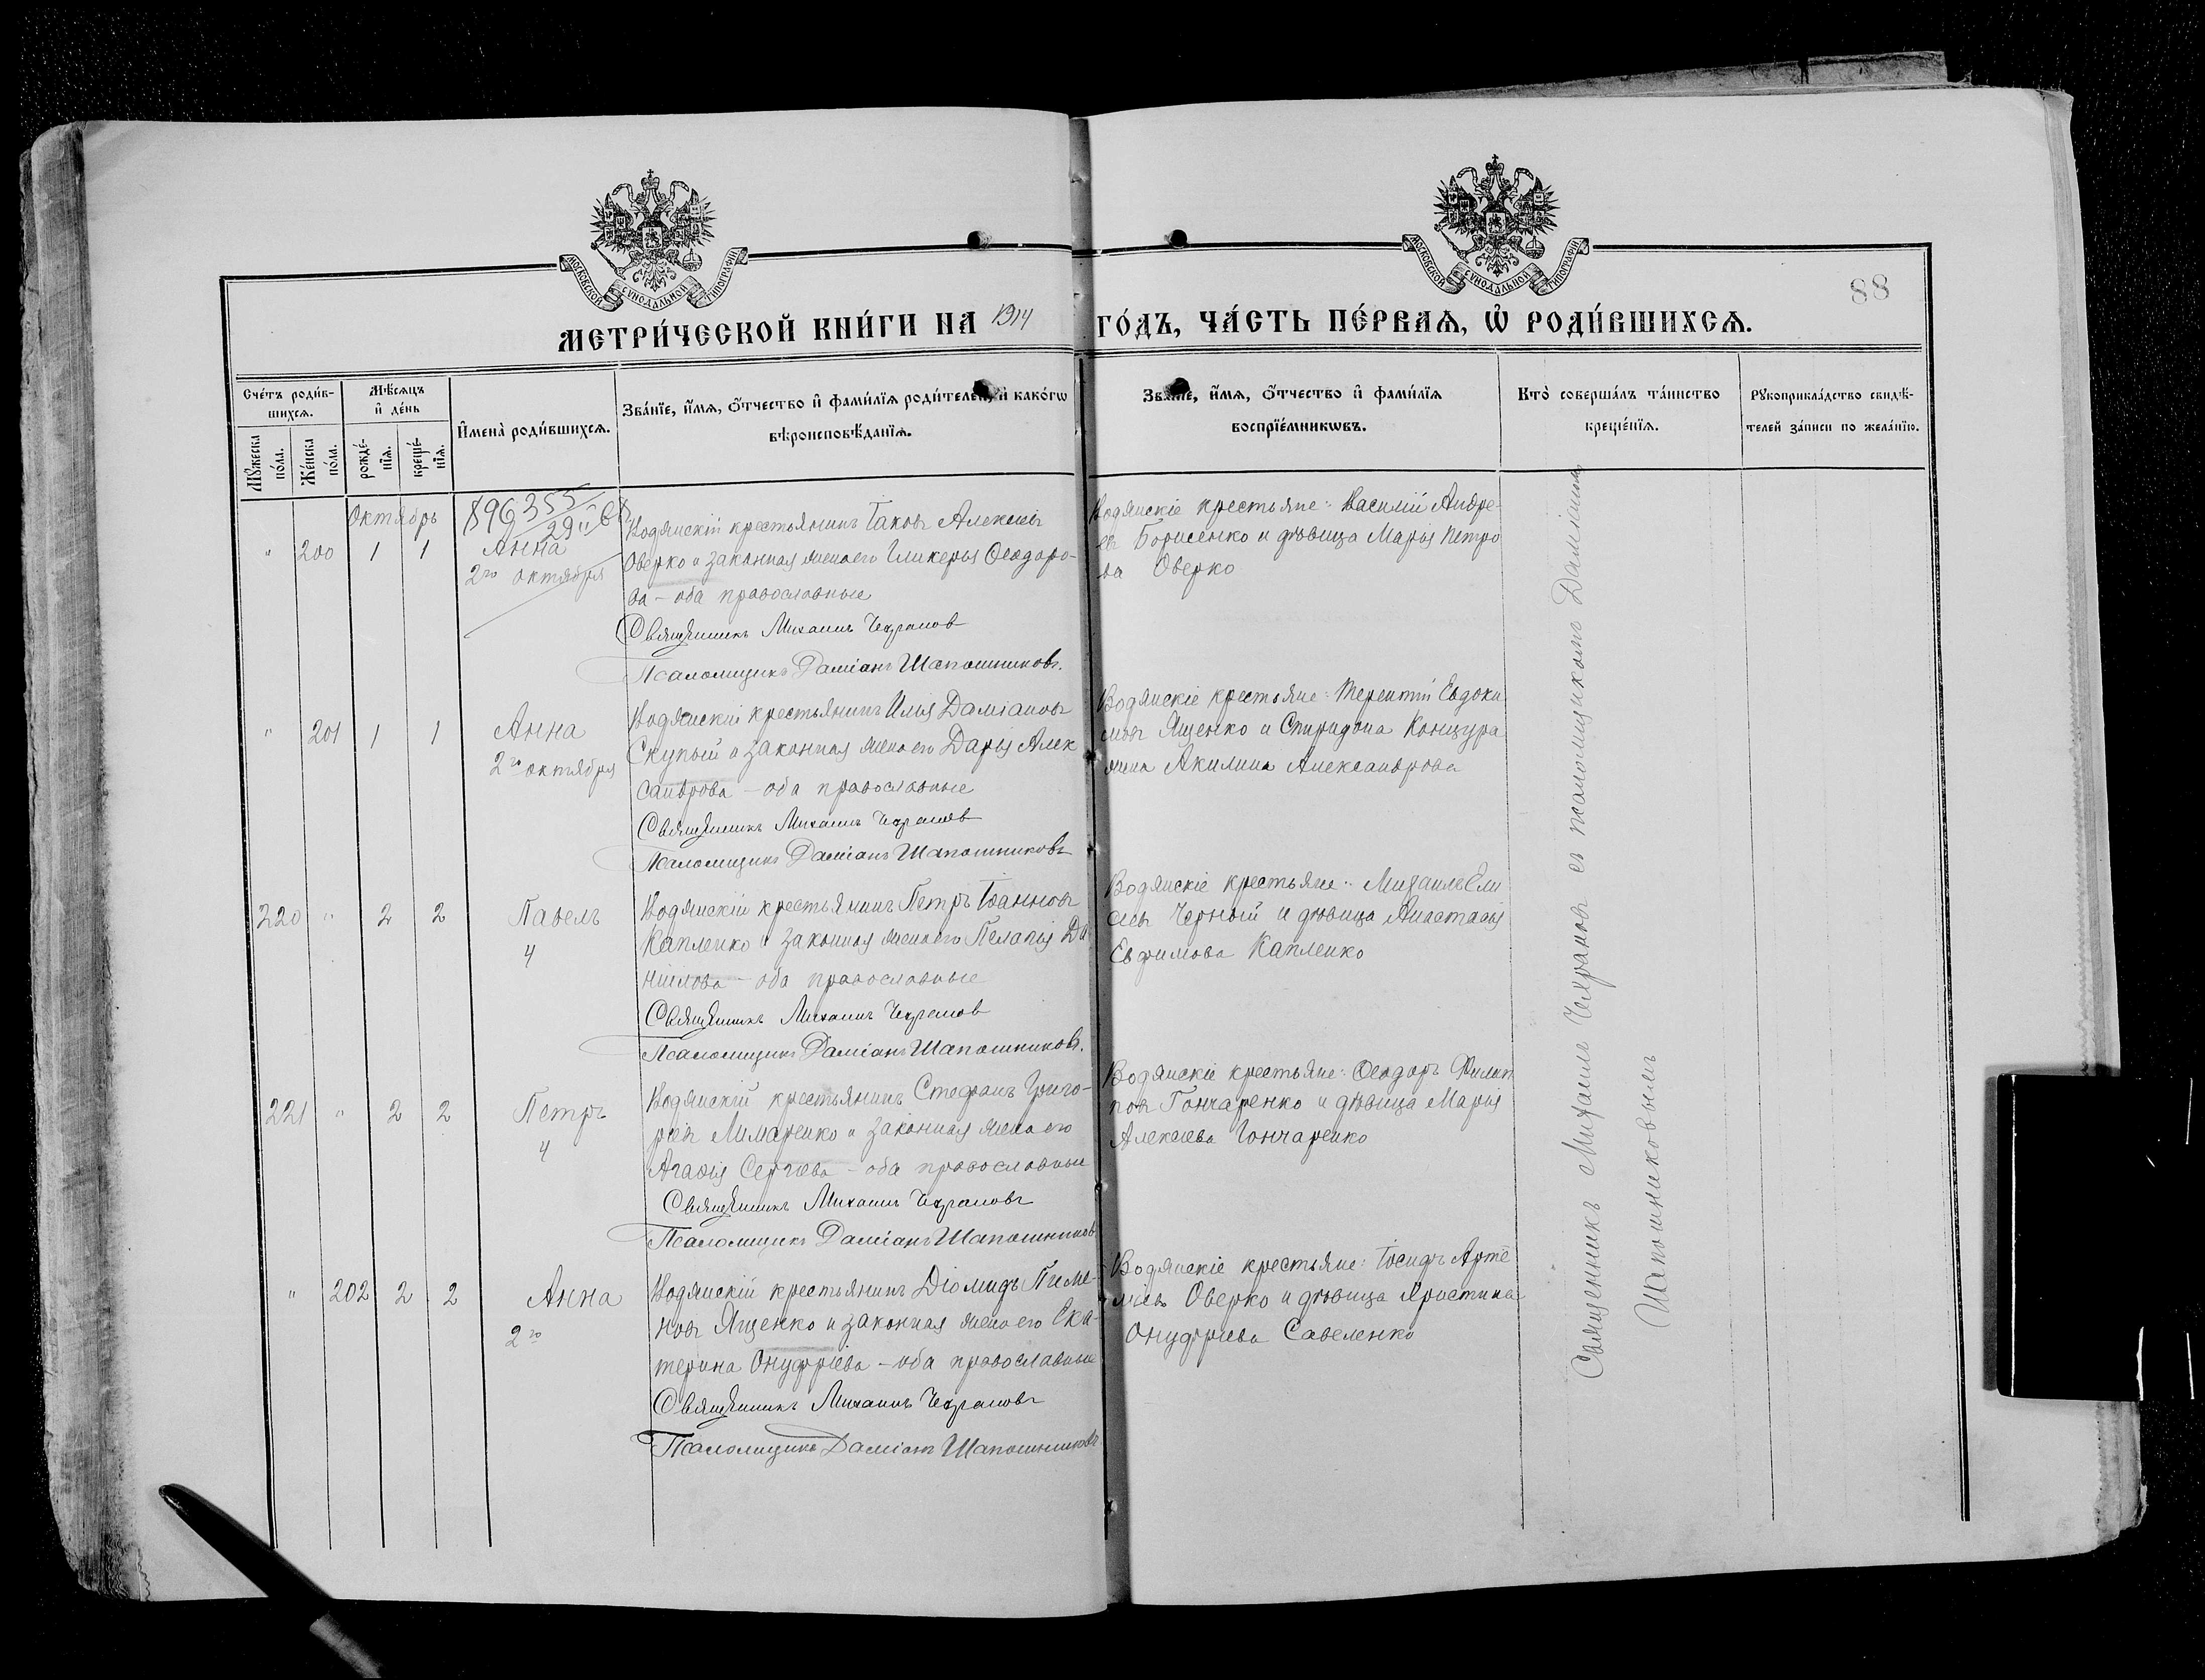 МОСКОВСКОЙ СУНОДАЛЬНОЙ ТИПОГРАФІИ
МОСКОВСКОЙ СУНОДАЛЬНОЙ ТИПОГРАФІИ
88
МЕТРИ́ЧЕСКОЙ КНИ́ГИ НА 1914 ГО́ДЪ, ЧА́СТЬ ПЕ́РВАѦ, Ѡ҆ РОДИ́ВШИХСѦ.
Сче́тъ роди́в-
шихсѧ.
Мꙋ́жеска
по́ла.
Же́нска
по́ла.
Мѣ́сѧцъ
и҆ де́нь
рожде́-
нїѧ.
креще́-
нїѧ.
И҆мена̀ роди́вшихсѧ.
Зва́нїе, и҆́мѧ, ѻ҆́тчество и҆ фами́лїѧ роди́телей, и҆ како́гѡ
вѣроисповѣ́данїѧ.
Зва́нїе, и҆́мѧ, ѻ҆́тчество и҆ фами́лїѧ
воспрїе́мникѡвъ.
Кто̀ соверша́лъ та́инство
креще́нїѧ.
Рꙋкоприкла́дство свидѣ́-
телей за́писи по жела́нїю.
Октябрь
896355
" 200 1 1
Анна
2го октября
Водянскій крестьянинъ Іаковъ Алексіевъ
Оверко и законная жена его Гликерія Ѳеодоро-
ва - оба православные
Священникъ Михаилъ Чехрановъ
Псаломщикъ Даміанъ Шапошниковъ.
Водянскіе крестьяне: Василій Андре-
евъ Борисенко и дѣвица Марія Петро
ва Оверко
" 201 1 1
Анна
2го октября
Водянскій крестьянинъ Илія Даміановъ
Скупый и законная жена его Дарія Алек
сандрова - оба православные
Священникъ Михаилъ Чехрановъ
Псаломщикъ Даміанъ Шапошниковъ
Водянскіе крестьяне: Терентій Евдоки
мовъ Ященко и Спиридона Концура
жена Акилина Александрова
220 " 2 2
Павелъ
4
Водянскій крестьянинъ Петръ Іоанновъ
Капленко и законная жена его Пелагія Да
ніилова - оба православные
Священникъ Михаилъ Чехрановъ
Псаломщикъ Даміанъ Шапошниковъ.
Водянскіе крестьяне: Михаилъ Ели
сѣевъ Черный и дѣвица Анастасія
Евфимова Капленко
221 " 2 2
Петръ
4
Водянскій крестьянинъ Стефанъ Григо-
ріевъ Лимаренко и законная жена его
Агафія Сергіева - оба православные
Священникъ Михаилъ Чехрановъ
Псаломщикъ Даміанъ Шапошниковъ
Водянскіе крестьяне: Ѳеодоръ Филип
повъ Гончаренко и дѣвица Марія
Алексіева Гончаренко
" 202 2 2
Анна
2го
Водянскій крестьянинъ Діомидъ Пиме-
новъ Ященко и законная жена его Ека-
терина Онуфріева - оба православные
Священникъ Михаилъ Чехрановъ
Псаломщикъ Даміанъ Шапошниковъ
Водянскіе крестьяне: Іосифъ Арте
міевъ Оверко и дѣвица Христина
Онуфріева Савеленко
Священникъ Михаилъ Чехрановъ съ псаломщикомъ Даміаномъ
Шапошниковымъ